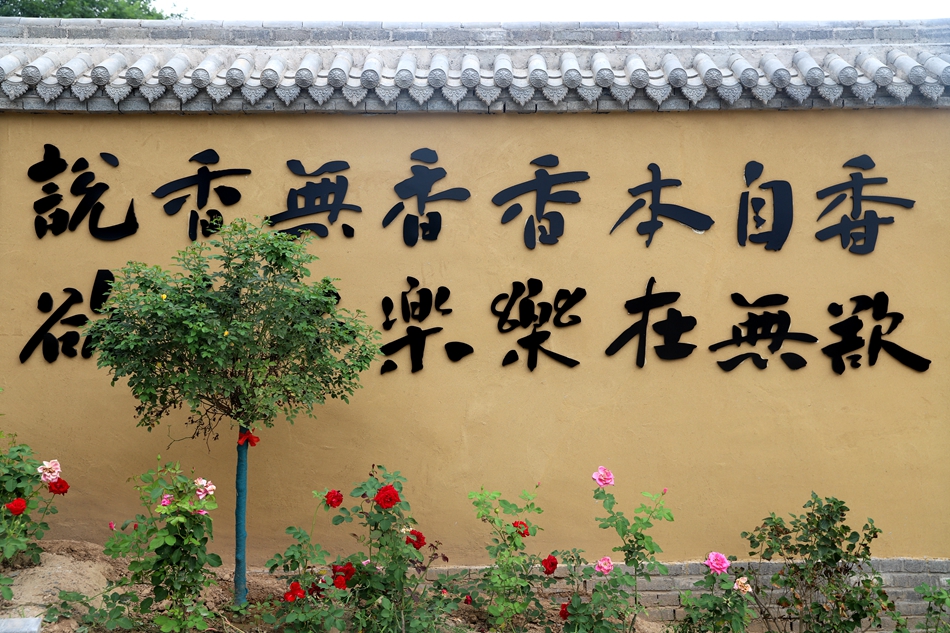 香自本香香無香說
歡無在樂樂欲